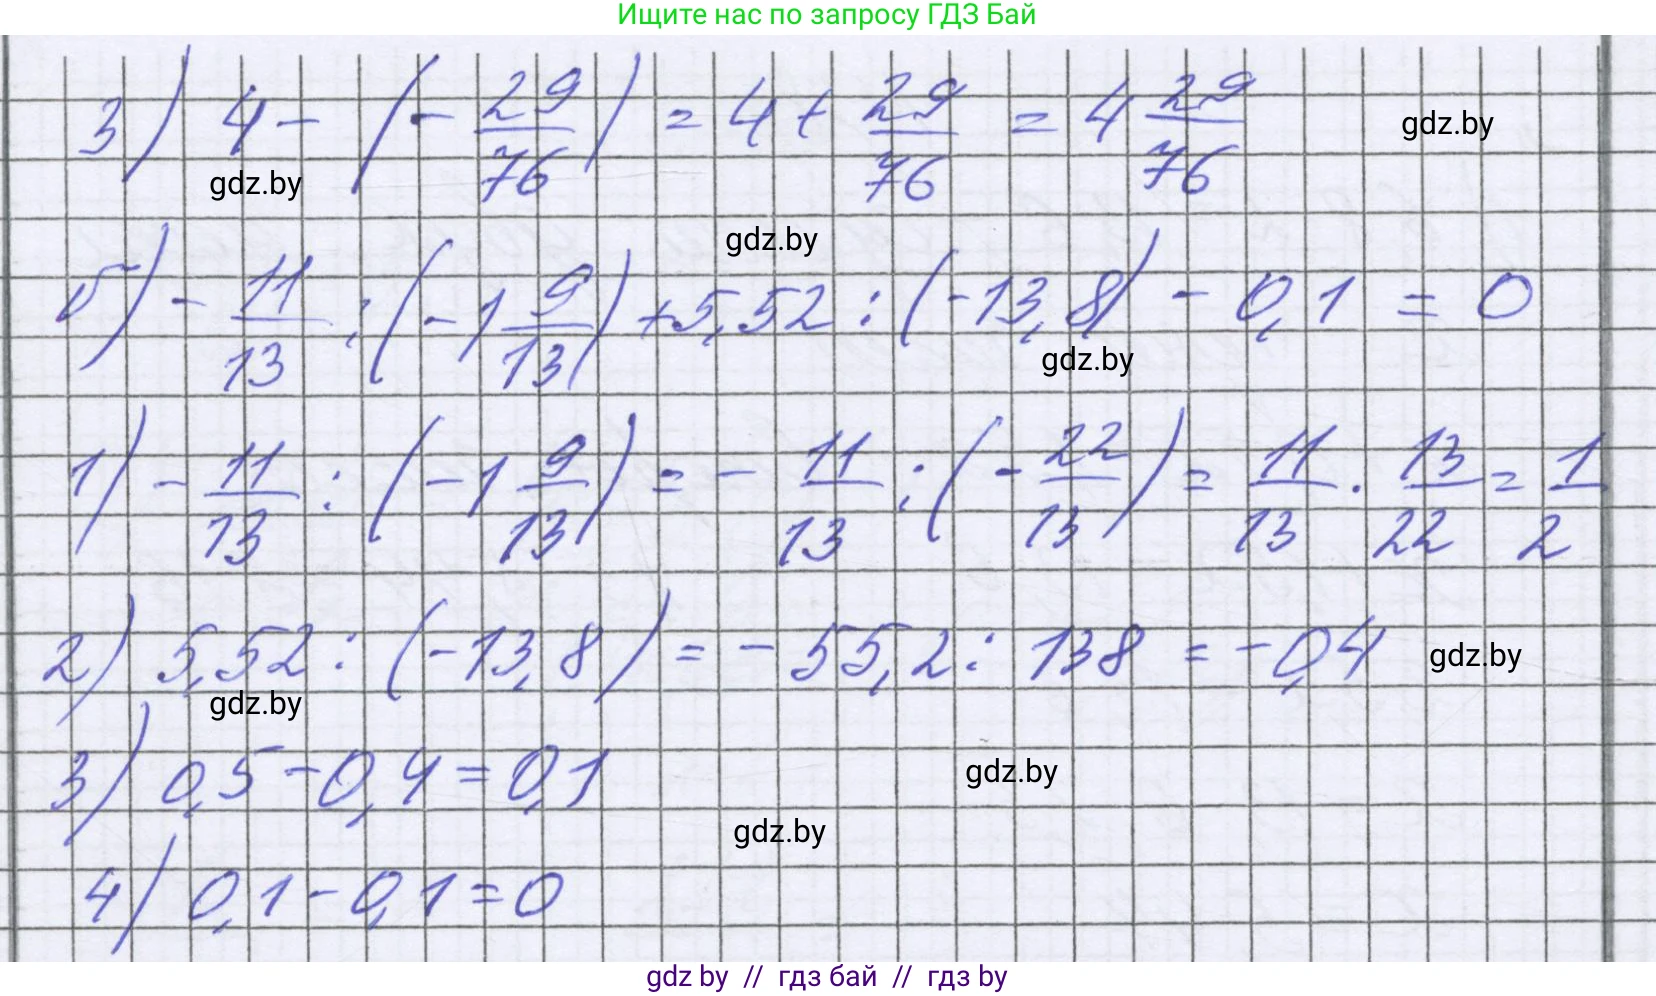 Ищите нас по запросу ГДЗ Бай
3) 4 - (- 29/76) = 4 + 29/76 = 4 29/76
gdz.by
gdz.by
gdz.by
б) - 11/13 : (-1 9/13) + 5,52 : (-13,8) - 0,1 = 0
gdz.by
1) - 11/13 : (-1 9/13) = - 11/13 : (- 22/13) = 11/13 · 13/22 = 1/2
2) 5,52 : (-13,8) = - 55,2 : 138 = -0,4
gdz.by
gdz.by
3) 0,5 - 0,4 = 0,1
gdz.by
gdz.by
4) 0,1 - 0,1 = 0
gdz by // гдз бай // гдз by